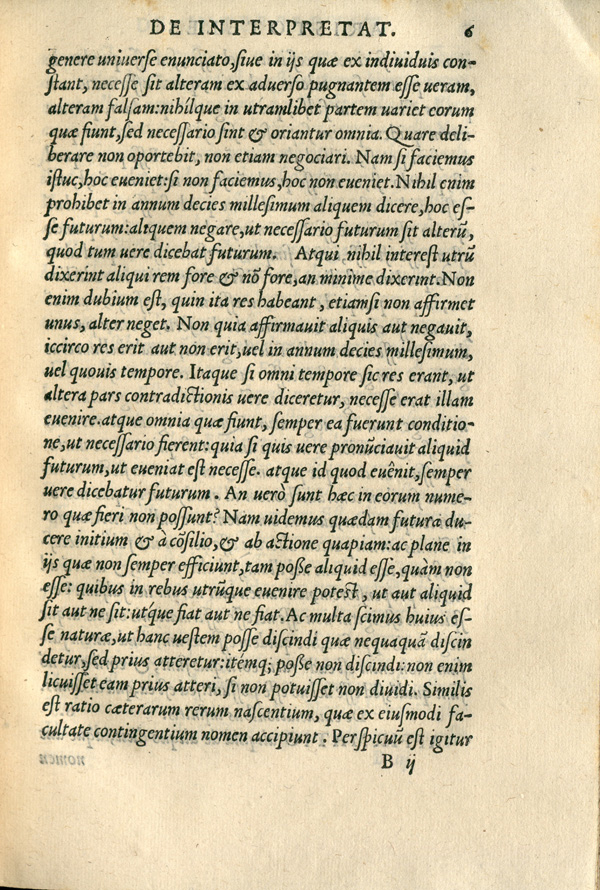 DE INTERPRETAT. 6
genere uniuerse enunciato, siue in ijs quæ ex indiuiduis con-
stant, necesse sit alteram ex aduerso pugnantem esse ueram,
alteram falsam: nihilque in utramlibet partem uariet eorum
quæ fiunt, sed necessario sint & oriantur omnia. Quare deli-
berare non oportebit, non etiam negociari. Nam si faciemus
istuc, hoc eueniet: si non faciemus, hoc non eueniet. Nihil enim
prohibet in annum decies millesimum aliquem dicere, hoc es-
se futurum: aliquem negare, ut necessario futurum sit alterũ,
quod tum uere dicebat futurum. Atqui nihil interest utrũ
dixerint aliqui rem fore & nõ fore, an minime dixerint. Non
enim dubium est, quin ita res habeant, etiamsi non affirmet
unus, alter neget. Non quia affirmauit aliquis aut negauit,
iccirco res erit aut non erit, uel in annum decies millesimum,
uel quouis tempore. Itaque si omni tempore sic res erant, ut
altera pars contradictionis uere diceretur, necesse erat illam
euenire. atque omnia quæ fiunt, semper ea fuerunt conditio-
ne, ut necessario fierent: quia si quis uere pronũciauit aliquid
futurum, ut eueniat est necesse. atque id quod euênit, semper
uere dicebatur futurum. An uerò sunt hæc in eorum nume-
ro quæ fieri non possunt? Nam uidemus quædam futura du-
cere initium & à cõsilio, & ab actione quapiam: ac plane in
ijs quæ non semper efficiunt, tam poße aliquid esse, quàm non
esse: quibus in rebus utrũque euenire potest, ut aut aliquid
sit aut ne sit: utque fiat aut ne fiat. Ac multa scimus huius es-
se naturæ, ut hanc uestem posse discindi quæ nequaquã discin
detur, sed prius atteretur: itemq; poße non discindi: non enim
licuisset eam prius atteri, si non potuisset non diuidi. Similis
est ratio cæterarum rerum nascentium, quæ ex eiusmodi fa-
cultate contingentium nomen accipiunt. Perspicuũ est igitur
B ij